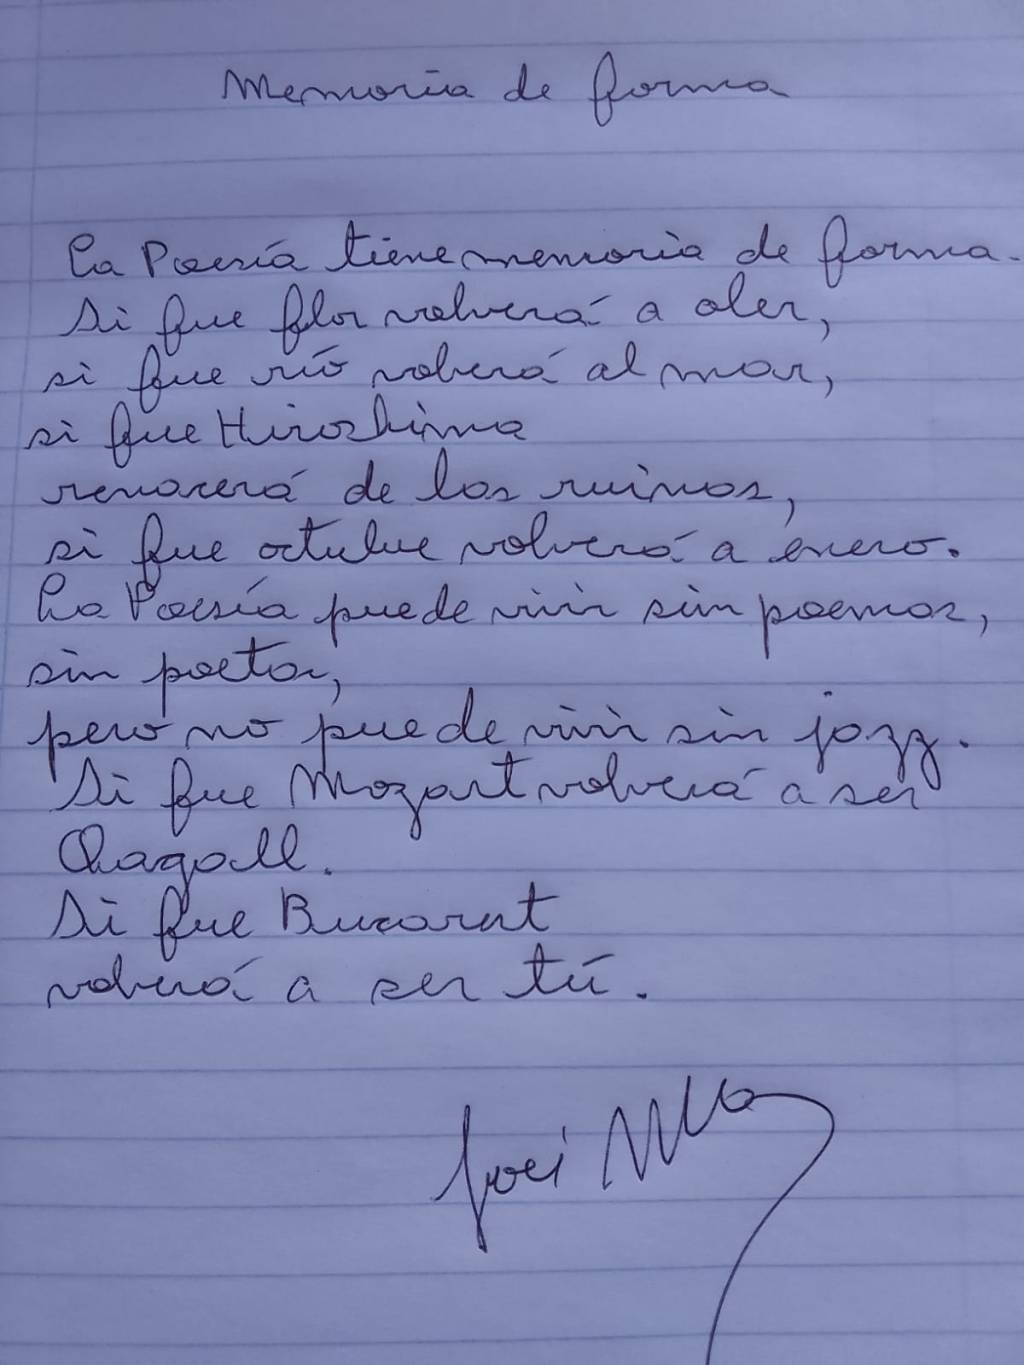 Memoria de forma
La Poesía tiene memoria de forma.
Si fue flor volverá a oler,
si fue río volverá al mar,
si fue Hiroshima
renacerá de las ruinas,
si fue octubre volverá a enero.
La Poesía puede vivir sin poemas,
sin poetas,
pero no puede vivir sin jazz.
Si fue Mozart volverá a ser
Chagall.
Si fue Bucarest
volverá a ser tú.